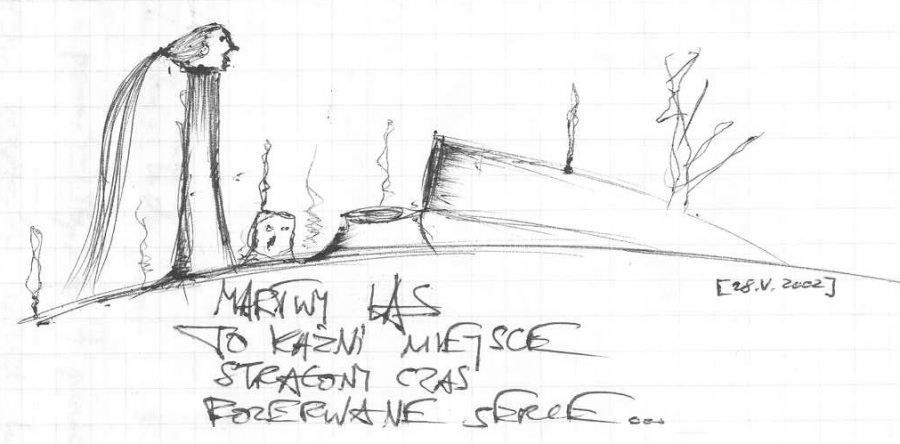 [28.V.2002]
MARTWY LAS
TO KAŹNI MIEJSCE
STRACONY CZAS
ROZERWANE SERCE...